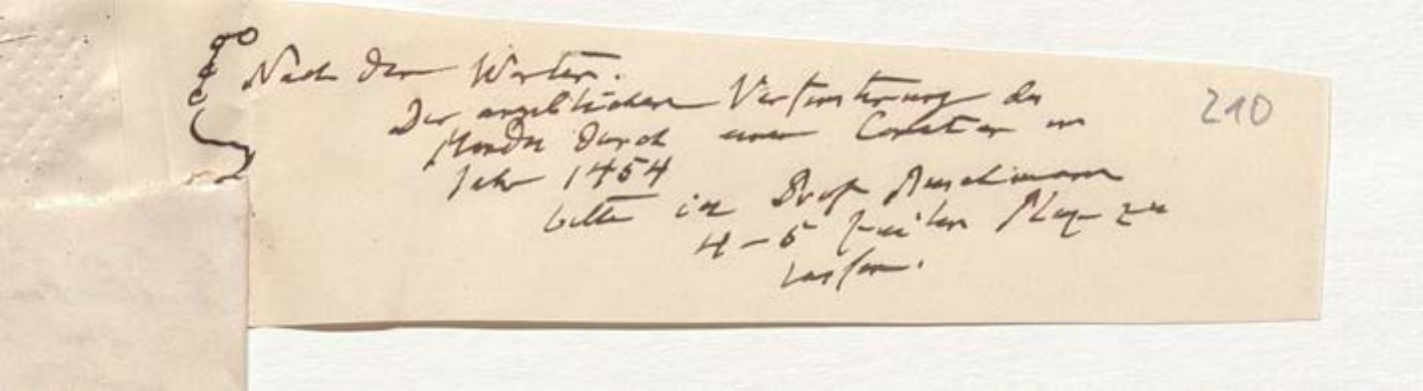 Nach den Worten.
Der angeblichen Verfinsterung des
Mondes durch einen Cometen im
Jahr 1454
bitte ich Prof Buschmann
4–5 Zeilen Platz zu
lassen.
210